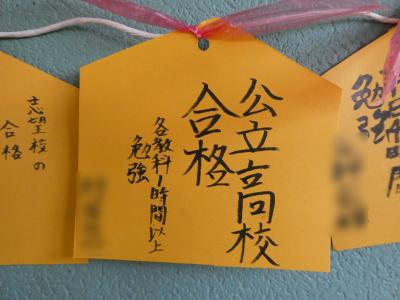 公立高校
合格
各教科1時間以上
勉強
志望校の
合格
勉強